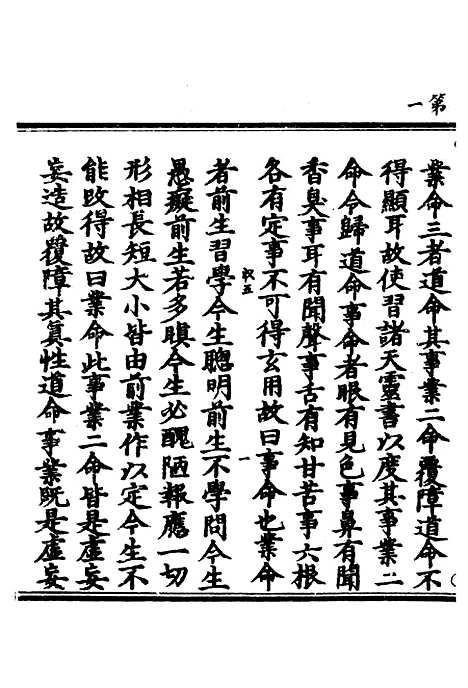 第一
業命三者道命其事業二命覆障道命不
得顯耳故使習諸天靈書以度其事業二
命令歸道命事命者眼有見色事鼻有聞
香臭事耳有聞聲事舌有知甘苦事六根
各有定事不可得玄用故曰事命也業命
者前生習學今生聰明前生不學問今生
愚癡前生若多瞋今生必醜陋報應一切
形相長短大小皆由前業作以定今生不
能改得故曰業命此事業二命皆是虛妄
妄造故覆障其眞性道命事業既是虛妄